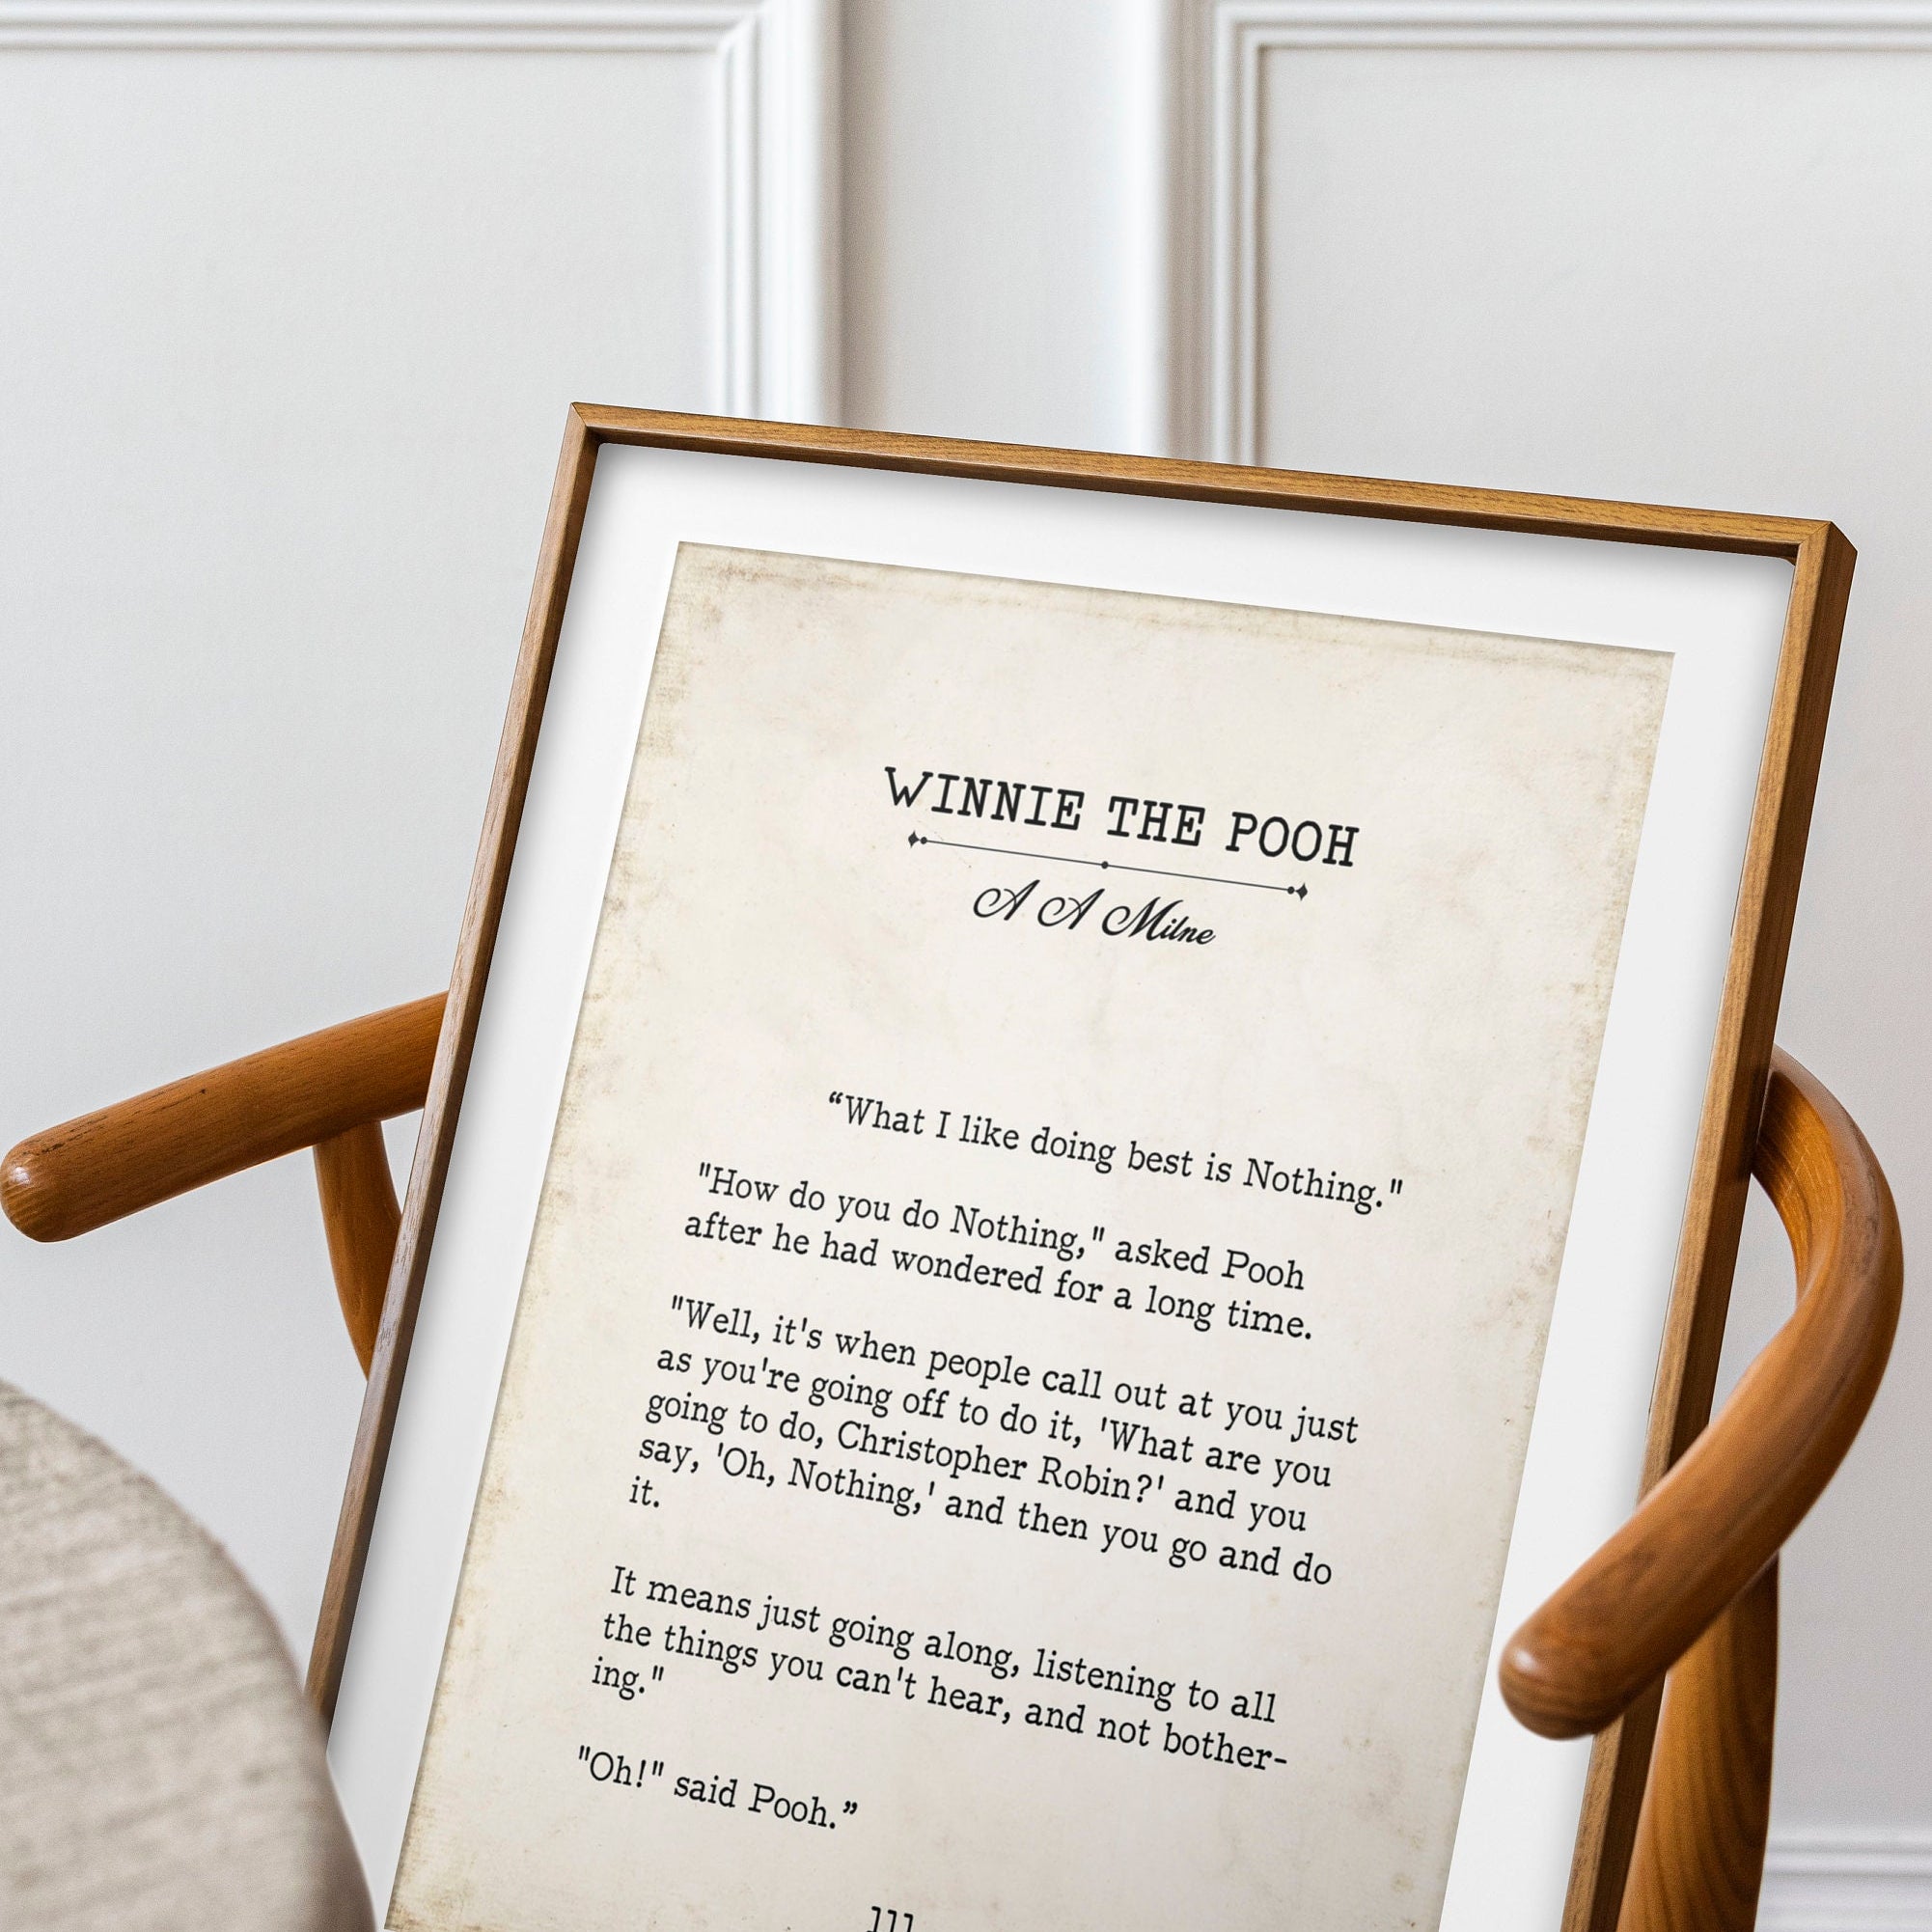 WINNIE THE POOH
A A Milne
“What I like doing best is Nothing."
"How do you do Nothing," asked Pooh
after he had wondered for a long time.
"Well, it's when people call out at you just
as you're going off to do it, 'What are you
going to do, Christopher Robin?' and you
say, 'Oh, Nothing,' and then you go and do
it.
It means just going along, listening to all
the things you can't hear, and not bother-
ing."
"Oh!" said Pooh.”